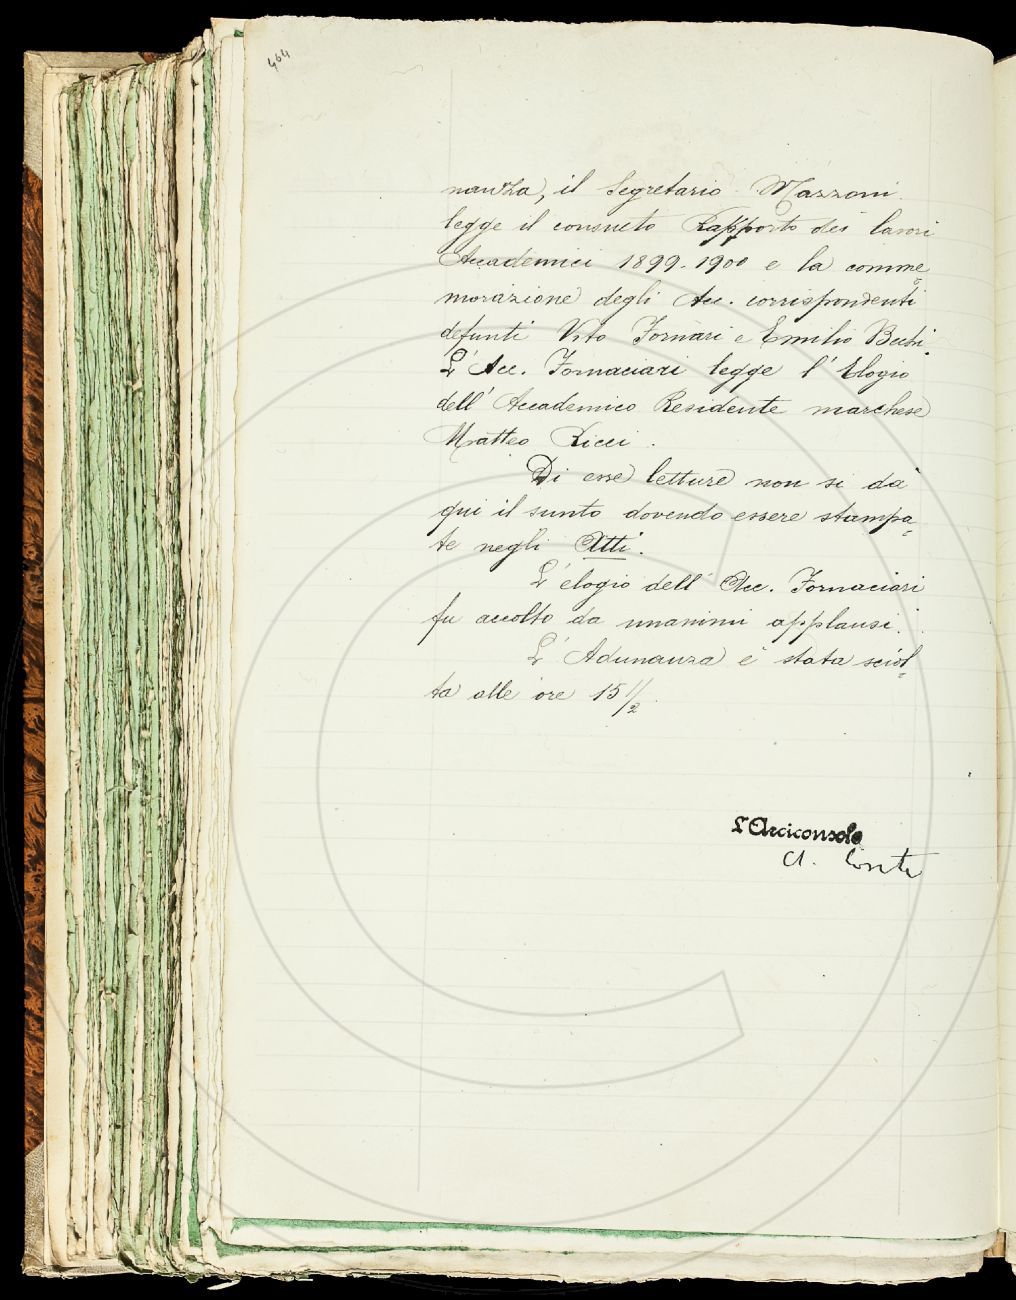 464
nanza, il Segretario Mazzoni
legge il consueto Rapporto dei lavori
Accademici 1899-1900 e la comme=
morazione degli Acc. corrispondenti
defunti Vito Fornari e Emilio Bechi.
L'Acc. Fornaciari legge l'Elogio
dell'Accademico Residente marchese
Matteo Ricci.
Di esse letture non si dà
qui il sunto dovendo essere stampa=
te negli Atti.
L'elogio dell'Acc. Fornaciari
fu accolto da unanimi applausi.
L'Adunanza è stata sciol=
ta alle ore 15 1/2
L'Arciconsolo
A. Conti